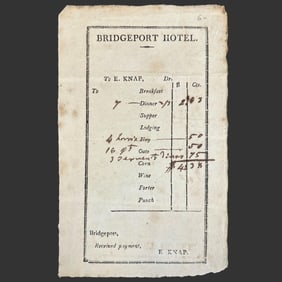 6-
BRIDGEPORT HOTEL.
To E. KNAP, Dr. $ Cts.
To Breakfast
7 Dinner 2/3 2 63
Supper
Lodging
4 horses Hay 50
16 qt Oats 50
3 Servants Dines 75
Corn $ 4 38
Wine
Porter
Punch
Bridgeport,
Received payment,
E KNAP.